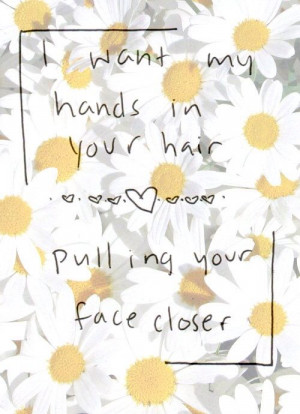 I want my
hands in
your hair
pulling your
face closer